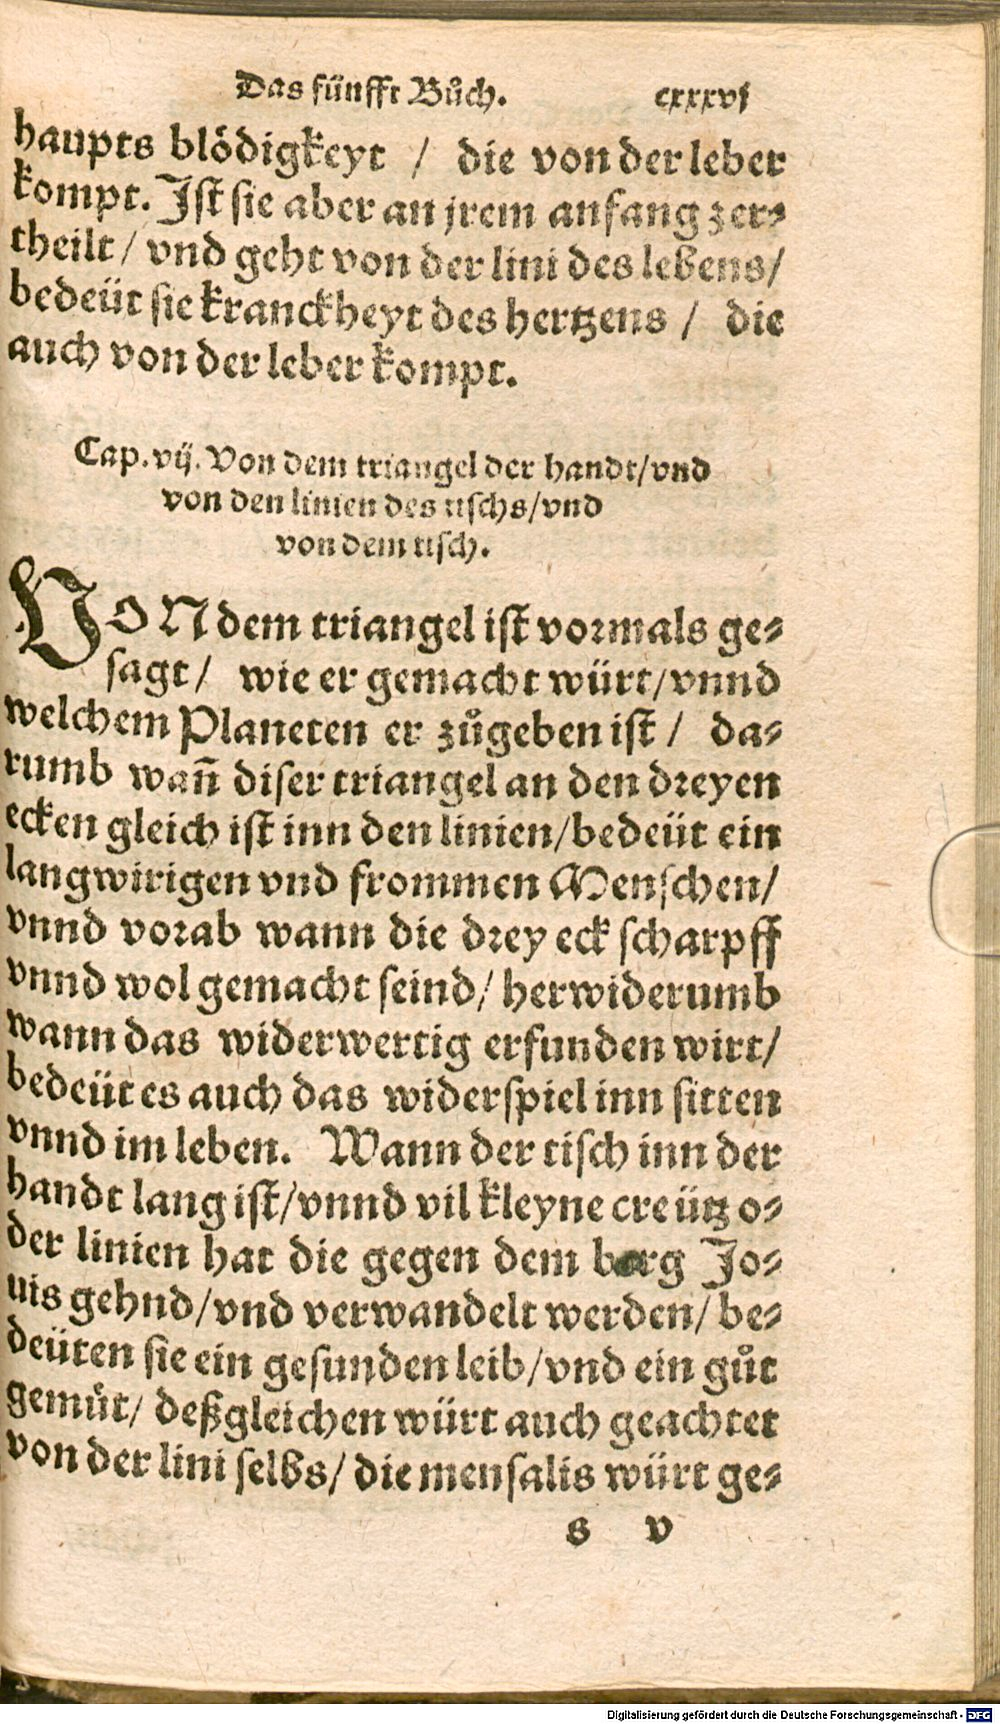 Das fünfft Bůch. cxxxvj
haupts blödigkeyt / die von der leber
kompt. Ist sie aber an jrem anfang zer⸗
theilt / vnd geht von der lini des lebens /
bedeüt sie kranckheyt des hertzens / die
auch von der leber kompt.
Cap. vij. Von dem triangel der handt / vnd
von den linien des tischs / vnd
von dem tisch.
VON dem triangel ist vormals ge⸗
sagt / wie er gemacht würt / vnnd
welchem Planeten er zůgeben ist / da⸗
rumb wañ diser triangel an den dreyen
ecken gleich ist inn den linien / bedeüt ein
langwirigen vnd frommen Menschen /
vnnd vorab wann die drey eck scharpff
vnnd wol gemacht seind / herwiderumb
wann das widerwertig erfunden wirt /
bedeüt es auch das widerspiel inn sitten
vnnd im leben. Wann der tisch inn der
handt lang ist / vnnd vil kleyne creütz o⸗
der linien hat die gegen dem berg Jo⸗
uis gehnd / vnd verwandelt werden / be⸗
deüten sie ein gesunden leib / vnd ein gůt
gemůt / deßgleichen würt auch geachtet
von der lini selbs / die mensalis würt ge⸗
s v
Digitalisierung gefördert durch die Deutsche Forschungsgemeinschaft - DFG